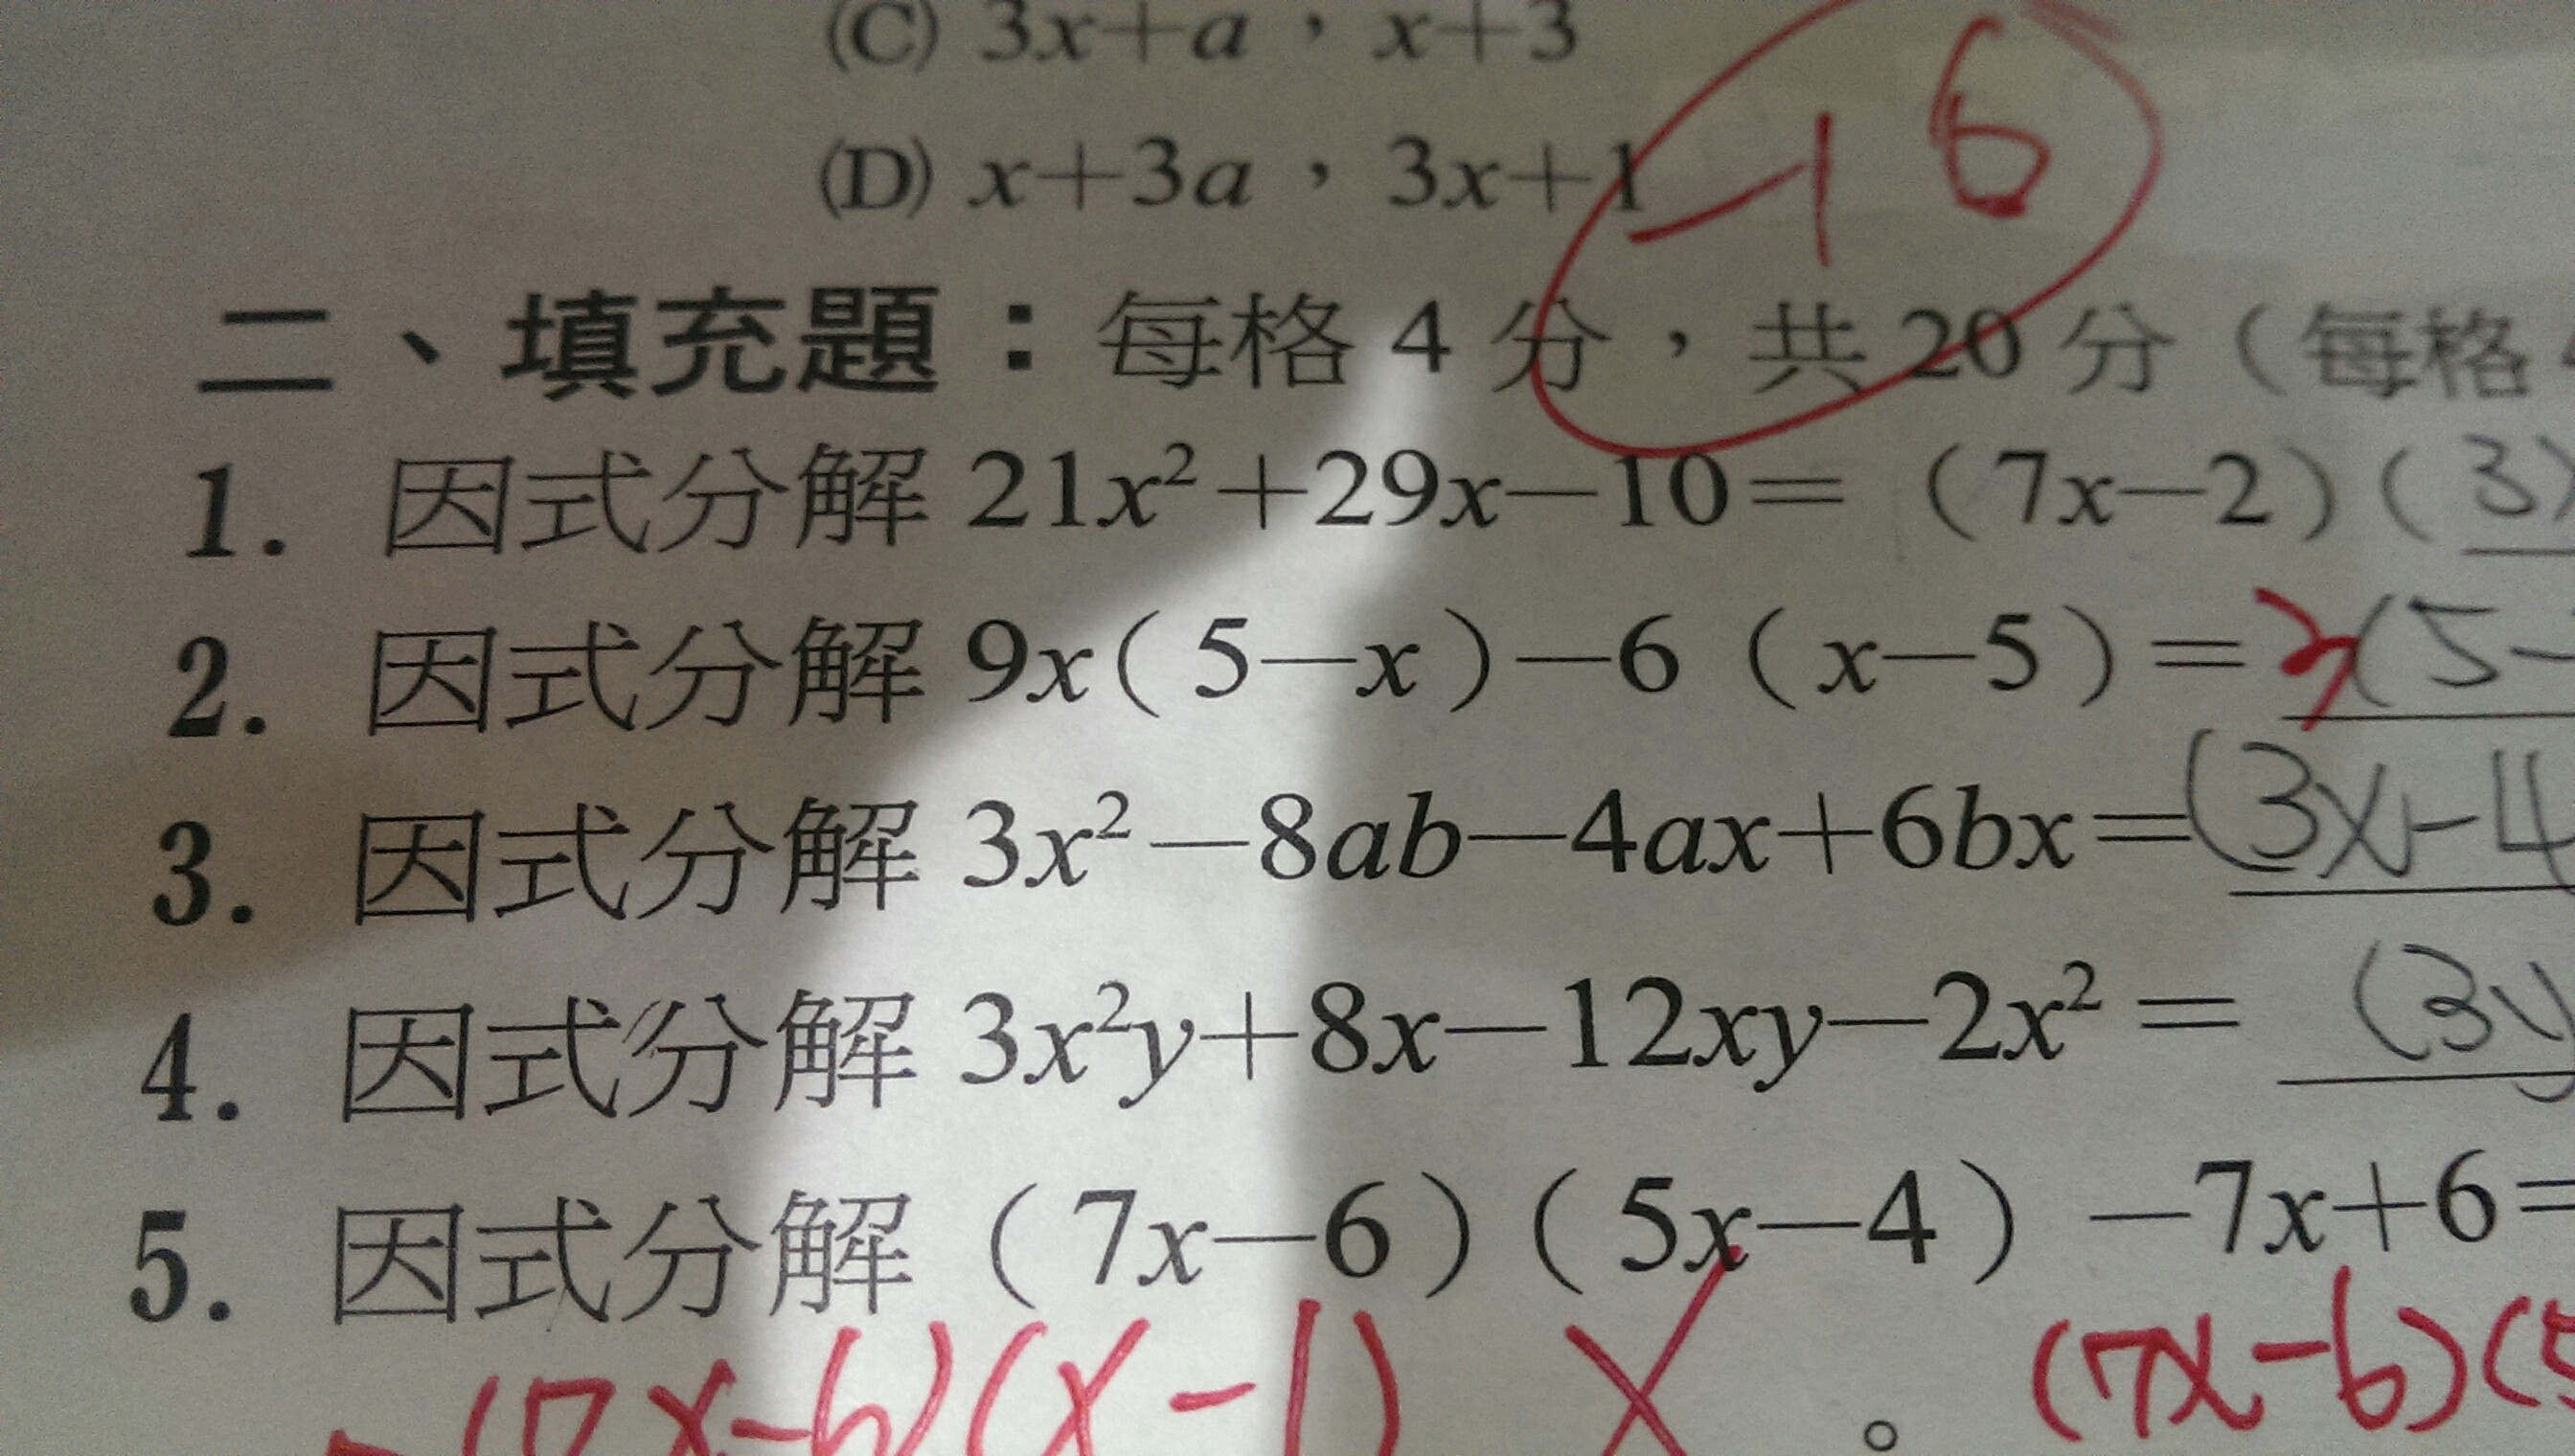 (C) 3x+a，x+3
(D) x+3a，3x+1
-16
二、填充題：每格 4 分，共 20 分（每格
1. 因式分解 21x²+29x-10=（7x-2）（3
2. 因式分解 9x（5-x）-6（x-5）=3(5-
3. 因式分解 3x²-8ab-4ax+6bx=(3x-4
4. 因式分解 3x²y+8x-12xy-2x²=(3y
5. 因式分解（7x-6）（5x-4）-7x+6=
(7x-6)(x-1)。(7x-6)(5